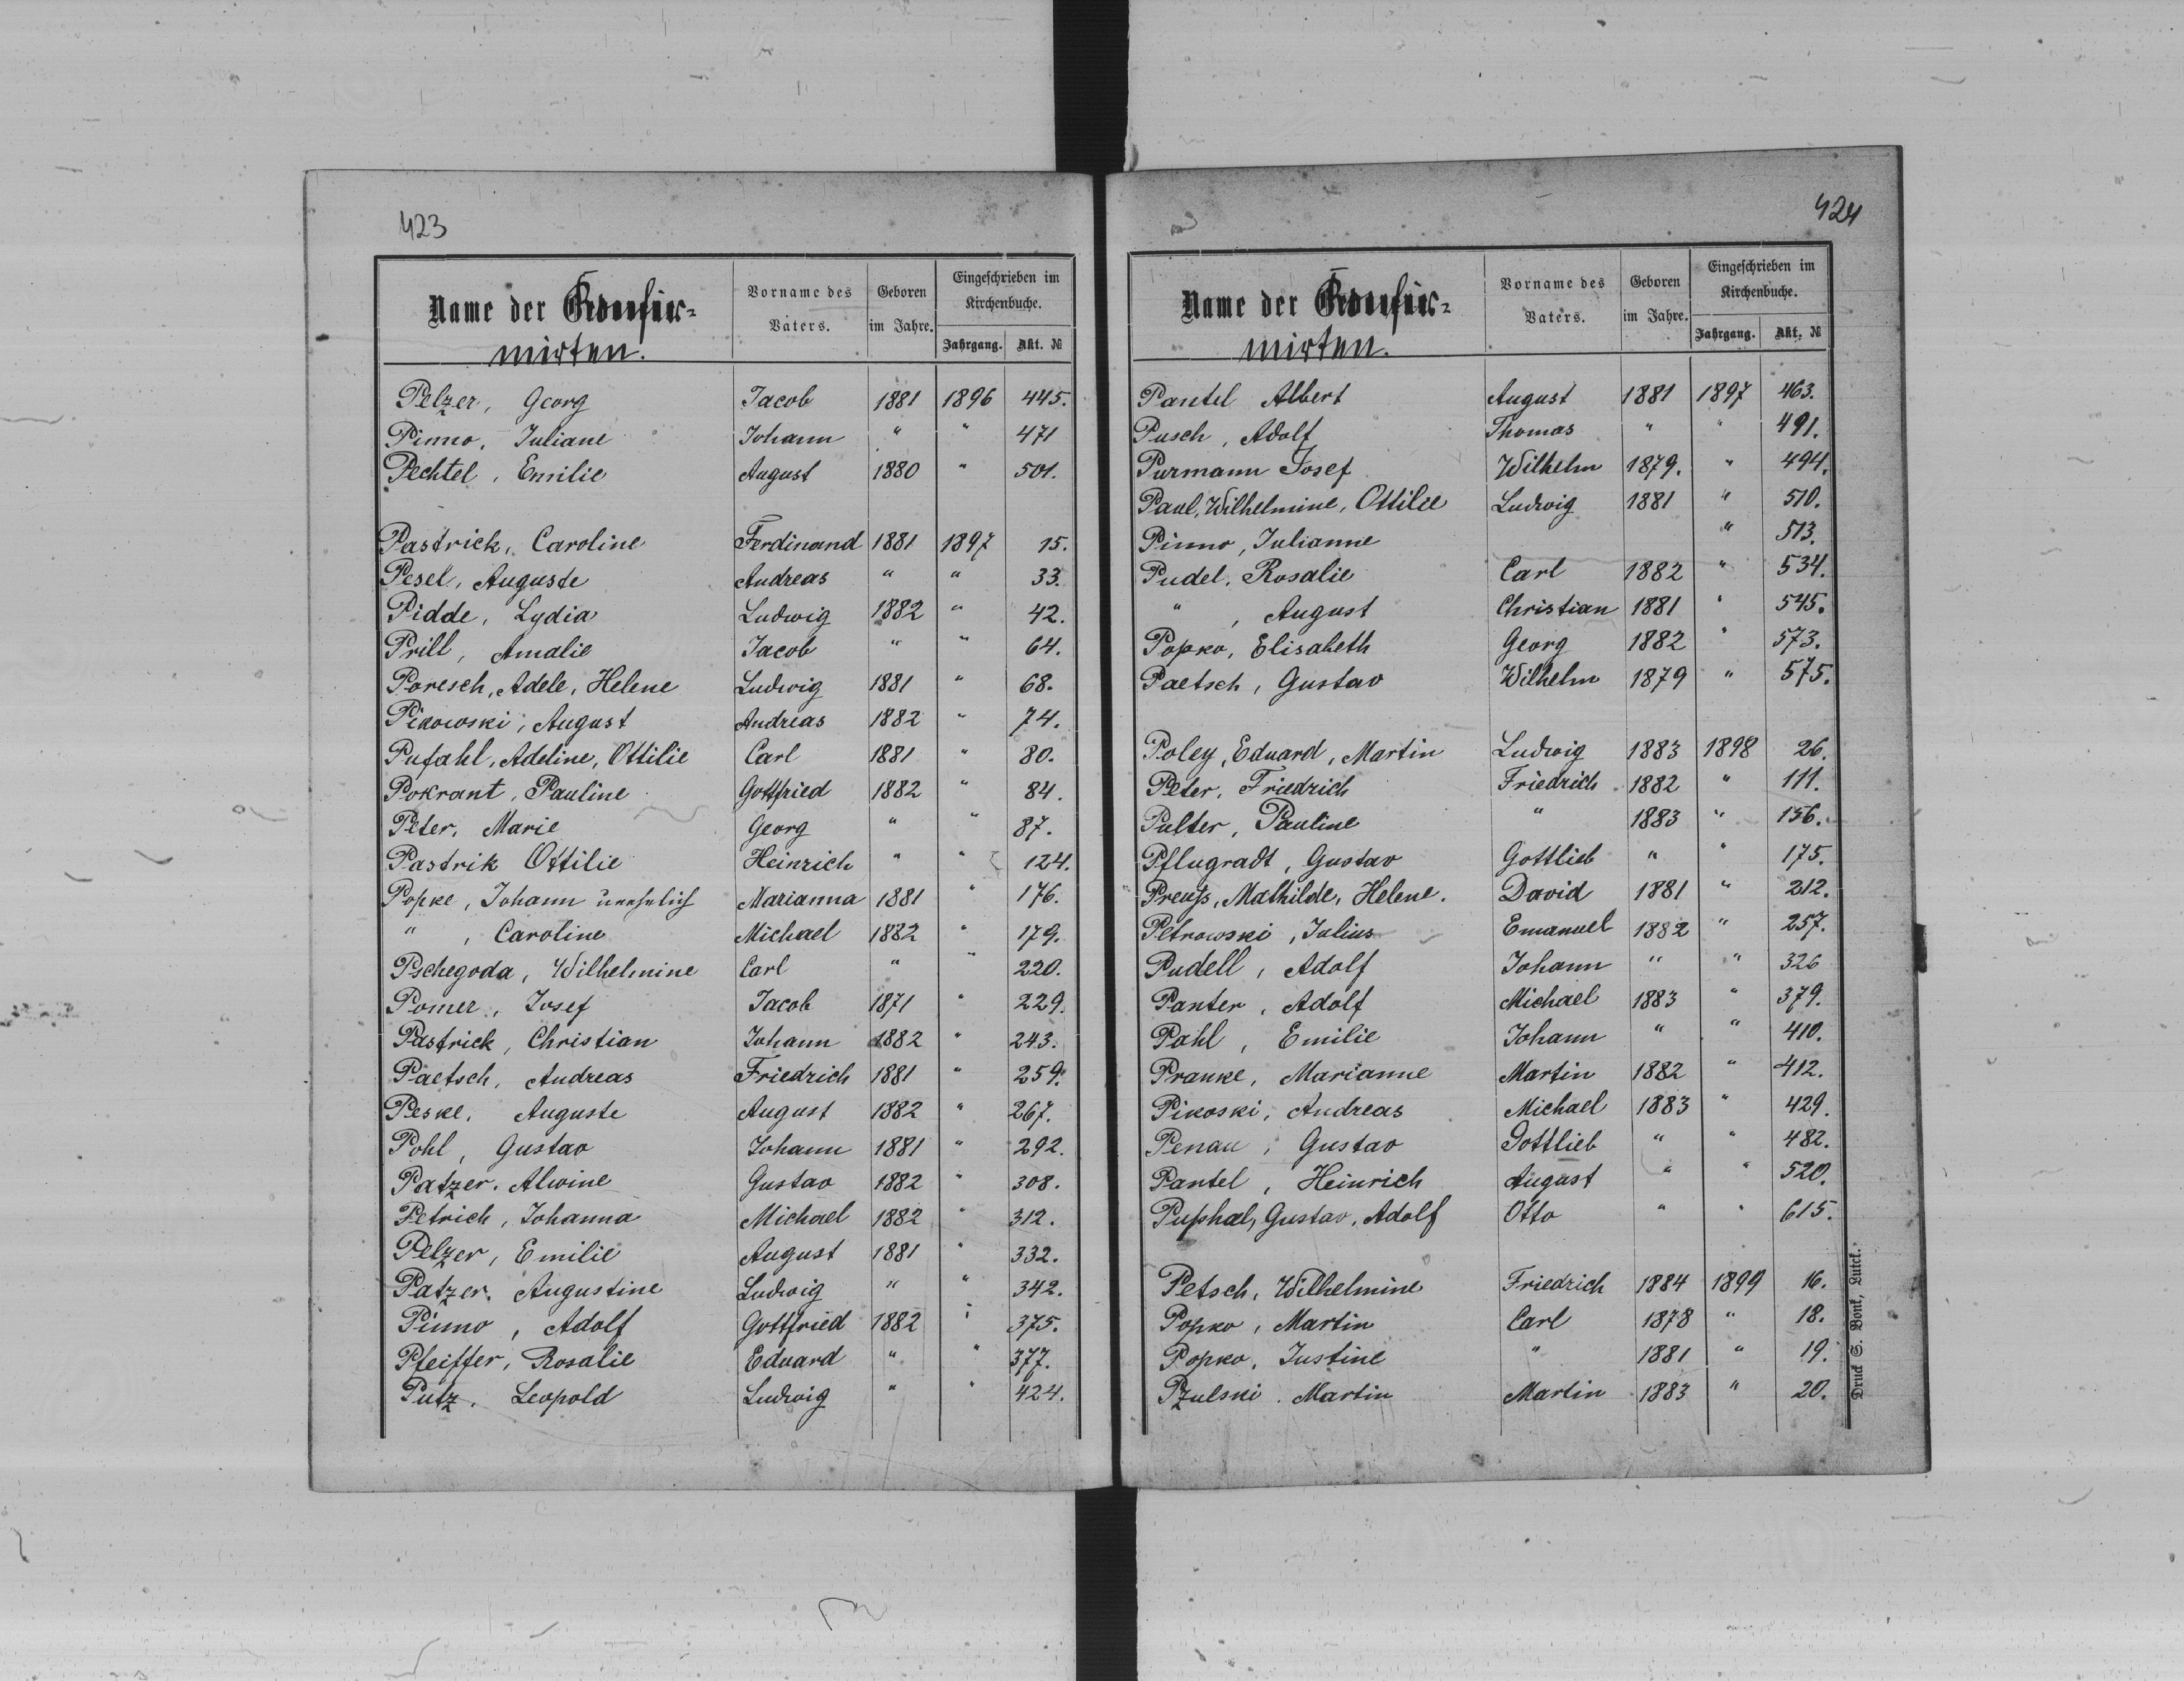 423
Name der Konfir-
mirten.
Vorname des
Vaters.
Geboren
im Jahre.
Eingeschrieben im
Kirchenbuche.
Jahrgang. Akt. №
Pelzer, Georg Jacob 1881 1896 445.
Pinno, Juliane Johann " " 471
Pechtel, Emilie August 1880 " 501.
Pastrick, Caroline Ferdinand 1881 1897 15.
Pesel, Auguste Andreas " " 33.
Pidde, Lydia Ludwig 1882 " 42.
Prill, Amalie Jacob " " 64.
Poresch, Adele, Helene Ludwig 1881 " 68.
Pikowski, August Andreas 1882 " 74.
Pufahl, Adeline, Ottilie Carl 1881 " 80.
Pokrant, Pauline Gottfried 1882 " 84.
Peter, Marie Georg " " 87.
Pastrik Ottilie Heinrich " " 124.
Popke, Johann unehelich Marianna 1881 " 176.
" , Caroline Michael 1882 " 179.
Pschegoda, Wilhelmine Carl " " 220.
Pomer, Josef Jacob 1871 " 229.
Pastrick, Christian Johann 1882 " 243.
Paetsch, Andreas Friedrich 1881 " 259.
Peske, Auguste August 1882 " 267.
Pohl, Gustav Johann 1881 " 292.
Patzer, Alwine Gustav 1882 " 308.
Petrich, Johanna Michael 1882 " 312.
Pelzer, Emilie August 1881 " 332.
Patzer, Augustine Ludwig " " 342.
Pinno, Adolf Gottfried 1882 " 375.
Pfeiffer, Rosalie Eduard " " 377.
Putz, Leopold Ludwig " " 424.
424
Name der Konfir-
mirten.
Vorname des
Vaters.
Geboren
im Jahre.
Eingeschrieben im
Kirchenbuche.
Jahrgang. Akt. №
Pantel Albert August 1881 1897 463.
Pusch, Adolf Thomas " " 491.
Purmann Josef Wilhelm 1879. " 494.
Paul, Wilhelmine, Ottilie Ludwig 1881 " 510.
Pinno, Julianne " 513.
Pudel, Rosalie Carl 1882 " 534.
" , August Christian 1881 " 545.
Popko, Elisabeth Georg 1882 " 573.
Paetsch, Gustav Wilhelm 1879 " 575.
Poley, Eduard, Martin Ludwig 1883 1898 26.
Peter, Friedrich Friedrich 1882 " 111.
Pulter, Pauline " 1883 " 156.
Pflugradt, Gustav Gottlieb " " 175.
Preuß, Mathilde, Helene. David 1881 " 212.
Petrowski, Julius Emanuel 1882 " 257.
Pudell, Adolf Johann " " 326
Panter, Adolf Michael 1883 " 379.
Pahl, Emilie Johann " " 410.
Pranke, Marianne Martin 1882 " 412.
Pikoski, Andreas Michael 1883 " 429.
Penau, Gustav Gottlieb " " 482.
Pantel, Heinrich August " " 520.
Puphal, Gustav, Adolf Otto " " 615.
Petsch, Wilhelmine Friedrich 1884 1899 16.
Popko, Martin Carl 1878 " 18.
Popko, Justine " 1881 " 19.
Pzulski. Martin Martin 1883 " 20.
Druck S. Bonk, Luck.